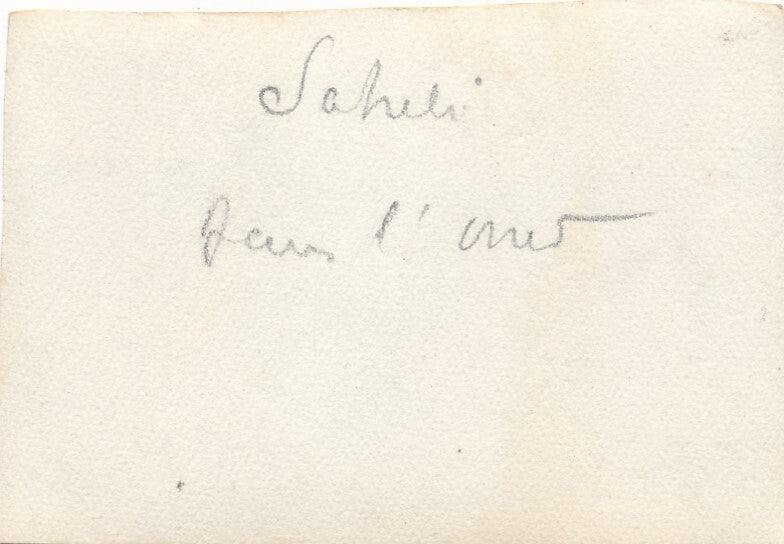 Saheli
dans l'oued